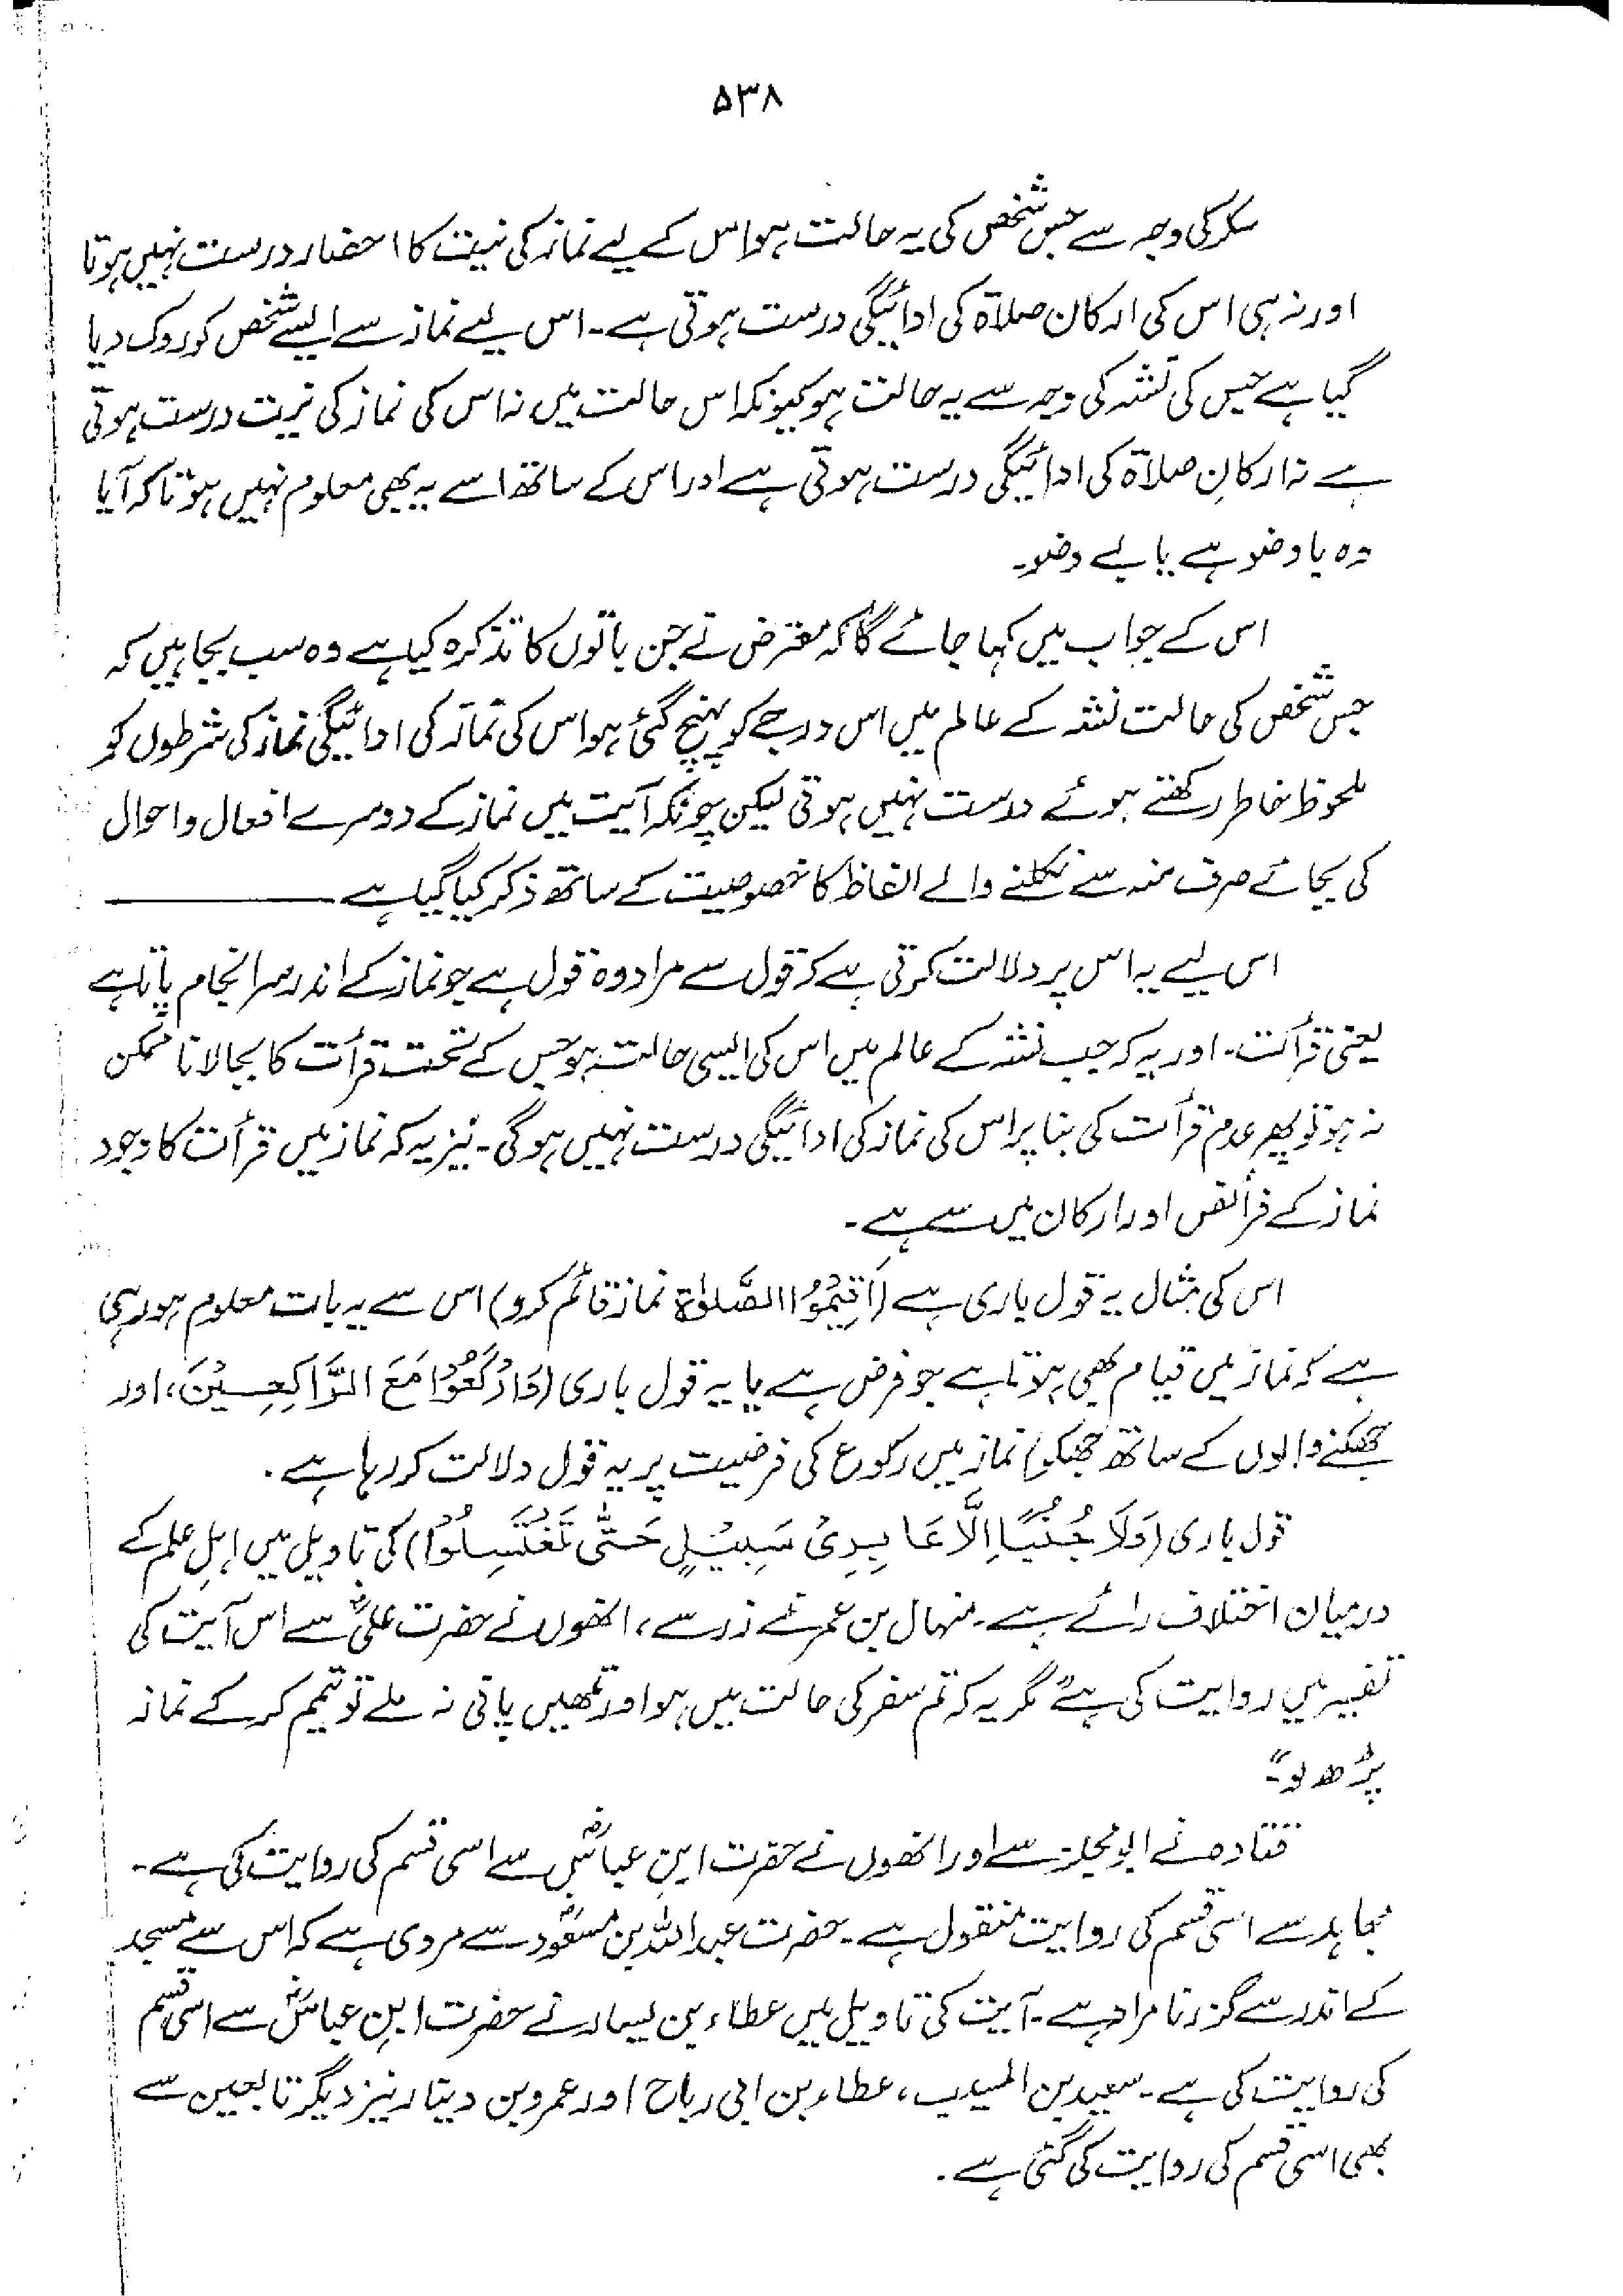 ۵۳۸
سکر کی وجہ سے جس شخص کی یہ حالت ہو اس کے لیے نماز کی نیت کا احضار درست نہیں ہوتا
اور نہ ہی اس کی ارکان صلاۃ کی ادائیگی درست ہوتی ہے۔ اس لیے نماز سے ایسے شخص کو روک دیا
گیا ہے جس کی نشہ کی وجہ سے یہ حالت ہو کیونکہ اس حالت میں نہ اس کی نماز کی نیت درست ہوتی
ہے نہ ارکانِ صلاۃ کی ادائیگی درست ہوتی ہے اور اس کے ساتھ اسے یہ بھی معلوم نہیں ہوتا کہ آیا
وہ باوضو ہے یا بے وضو۔
اس کے جواب میں کہا جائے گا کہ معترض نے جن باتوں کا تذکرہ کیا ہے وہ سب بجا ہیں کہ
جس شخص کی حالت نشہ کے عالم میں اس درجے کو پہنچ گئی ہو اس کی نماز کی ادائیگی نماز کی شرطوں کو
ملحوظ خاطر رکھتے ہوئے درست نہیں ہوتی لیکن چونکہ آیت میں نماز کے دوسرے افعال و احوال
کی بجائے صرف منہ سے نکلنے والے الفاظ کا خصوصیت کے ساتھ ذکر کیا گیا ہے ــــــــــــ
اس لیے یہ اس پر دلالت کرتی ہے کہ قول سے مراد وہ قول ہے جو نماز کے اندر سرانجام پاتا ہے
یعنی قرأت۔ اور یہ کہ جب نشہ کے عالم میں اس کی ایسی حالت ہو جس کے تحت قرأت کا بجا لانا ممکن
نہ ہو تو پھر عدم قرأت کی بنا پر اس کی نماز کی ادائیگی درست نہیں ہوگی۔ نیز یہ کہ نماز میں قرأت کا وجود
نماز کے فرائض اور ارکان میں سے ہے۔
اس کی مثال یہ قول باری ہے (اَقِیْمُوا الصَّلوٰۃَ نماز قائم کرو) اس سے یہ بات معلوم ہو رہی
ہے کہ نماز میں قیام بھی ہوتا ہے جو فرض ہے یا یہ قول باری (وَارْکَعُوْا مَعَ الرَّاکِعِیْنَ، اور
جھکنے والوں کے ساتھ جھکو) نماز میں رکوع کی فرضیت پر یہ قول دلالت کر رہا ہے۔
قول باری (وَلَا جُنُبًا اِلَّا عَابِرِیْ سَبِیْلٍ حَتّٰی تَغْتَسِلُوْا) کی تاویل میں اہلِ علم کے
درمیان اختلاف رائے ہے۔ منہال بن عمرو نے زر سے، انھوں نے حضرت علیؓ سے اس آیت کی
تفسیر میں روایت کی ہے "مگر یہ کہ تم سفر کی حالت میں ہو اور تمھیں پانی نہ ملے تو تیمم کر کے نماز
پڑھ لو"۔
قتادہ نے ابو مجلز سے اور انھوں نے حضرت ابنِ عباسؓ سے اسی قسم کی روایت کی ہے۔
مجاہد سے اسی قسم کی روایت منقول ہے۔ حضرت عبداللہ بن مسعودؓ سے مروی ہے کہ اس سے مسجد
کے اندر سے گزرنا مراد ہے۔ آیت کی تاویل میں عطاء بن یسار نے حضرت ابنِ عباسؓ سے اسی قسم
کی روایت کی ہے۔ سعید بن المسیب، عطاء بن ابی رباح اور عمرو بن دینار نیز دیگر تابعین سے
بھی اسی قسم کی روایت کی گئی ہے۔